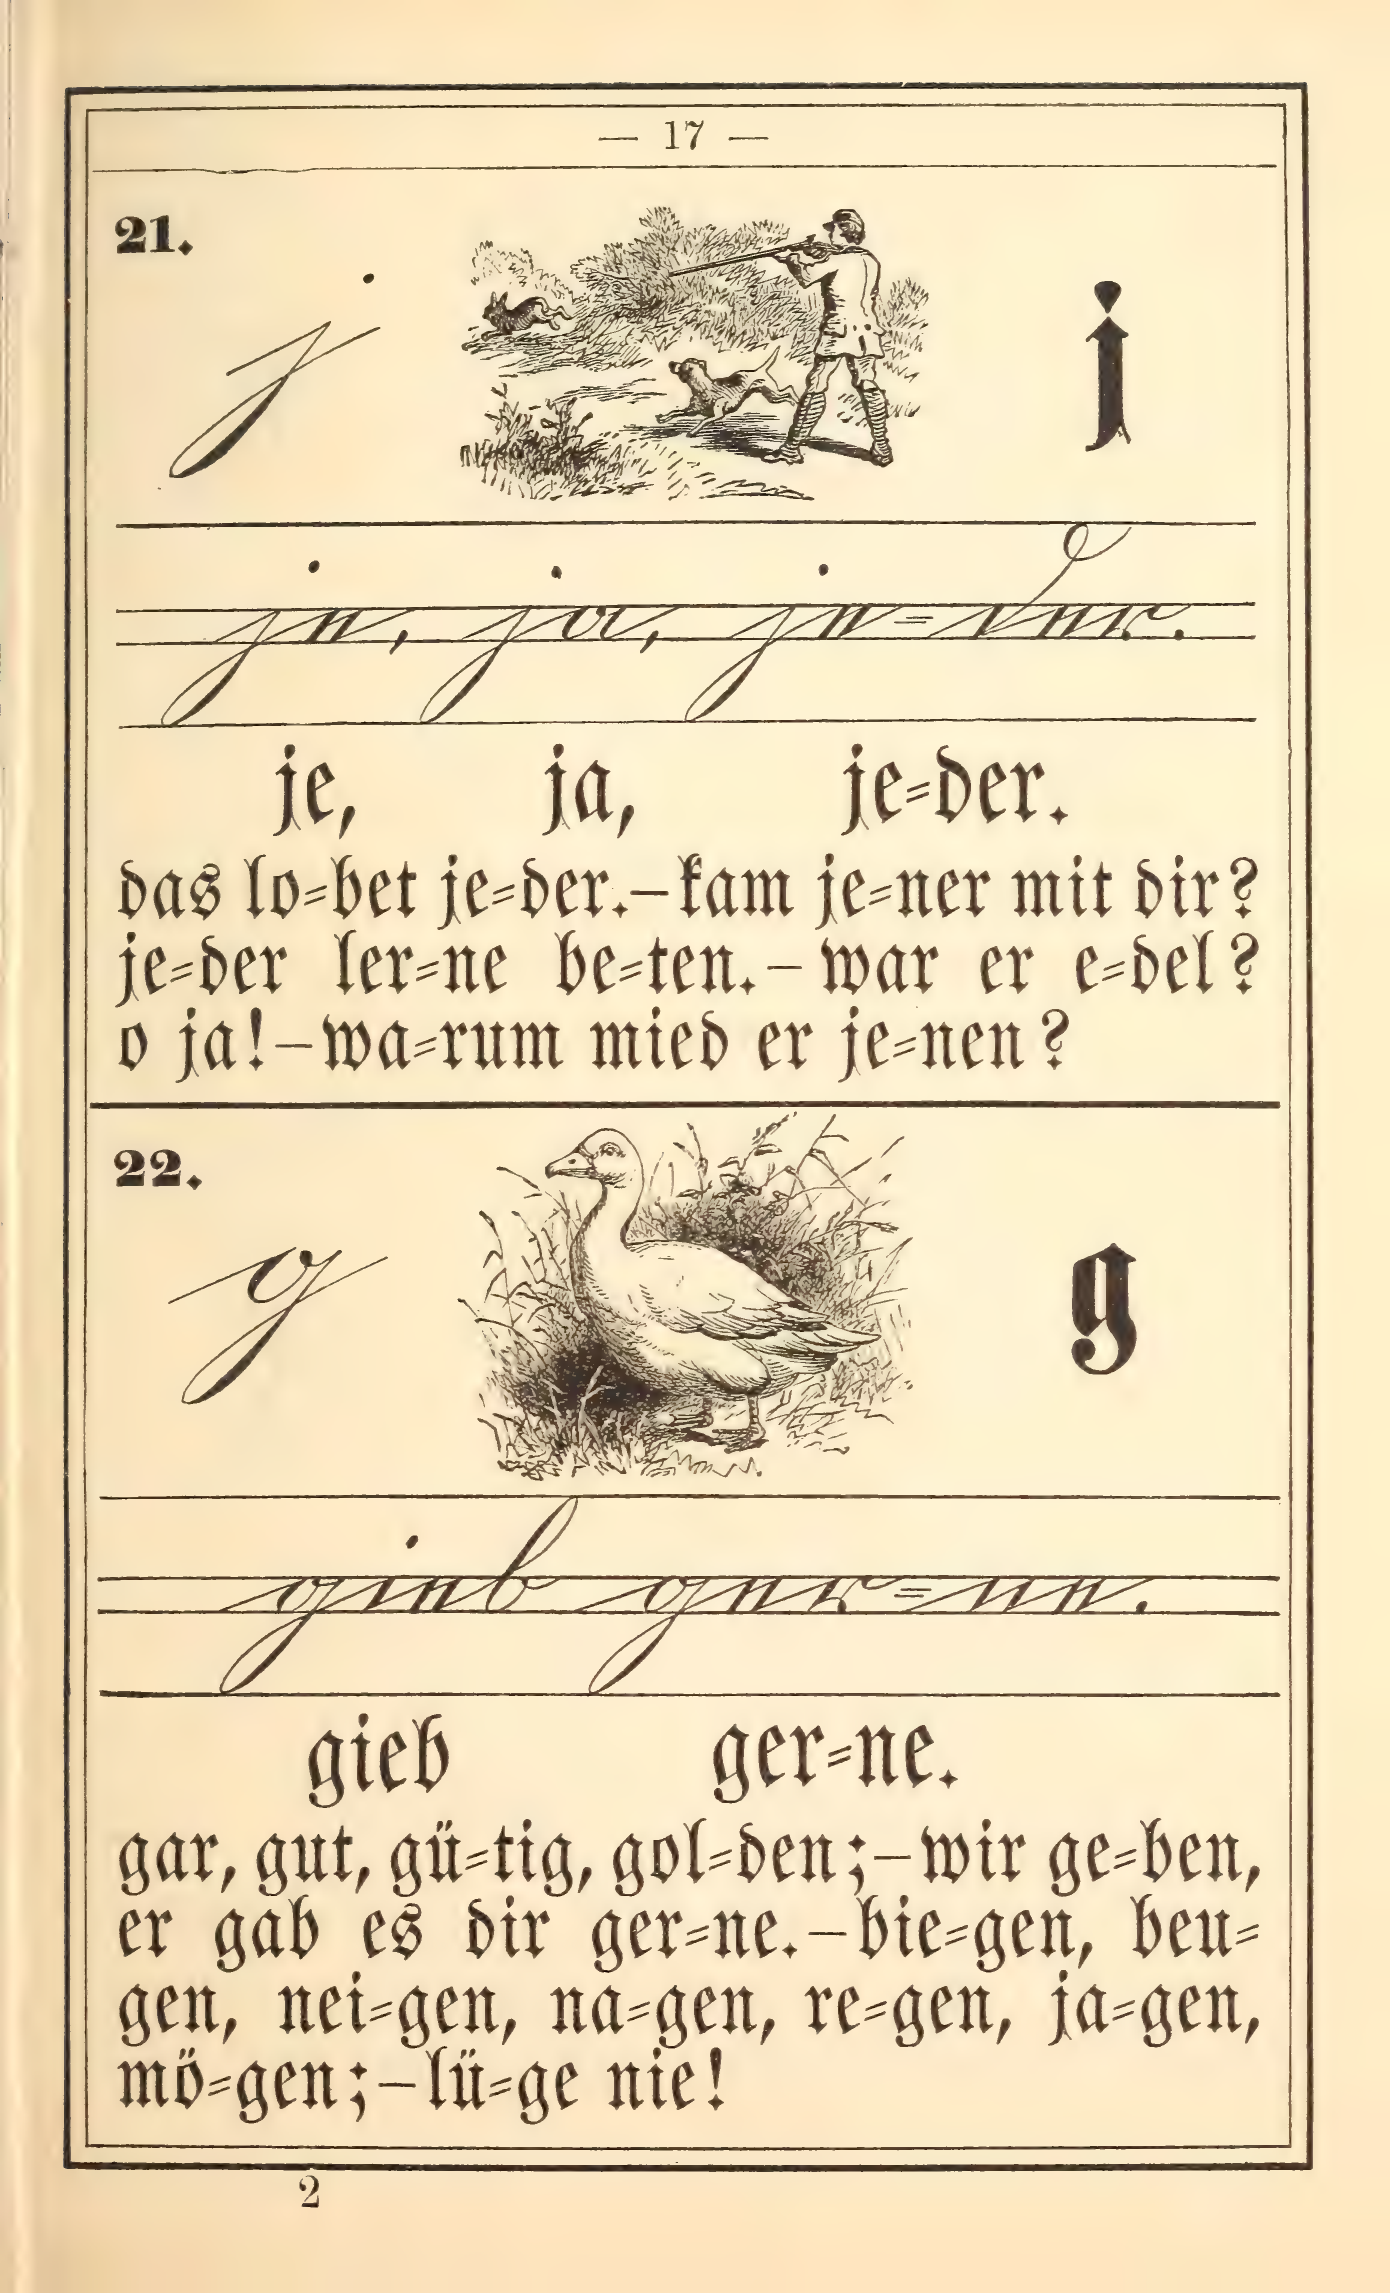 — 17 —
21.
j j
je, ja, je=der.
je, ja, je=der.
das lo=bet je=der.–kam je=ner mit dir?
je=der ler=ne be=ten.–war er e=del?
o ja!–wa=rum mied er je=nen?
22.
g g
gieb ger=ne.
gieb ger=ne.
gar, gut, gü=tig, gol=den;–wir ge=ben,
er gab es dir ger=ne.–bie=gen, beu=
gen, nei=gen, na=gen, re=gen, ja=gen,
mö=gen;–lü=ge nie!
2